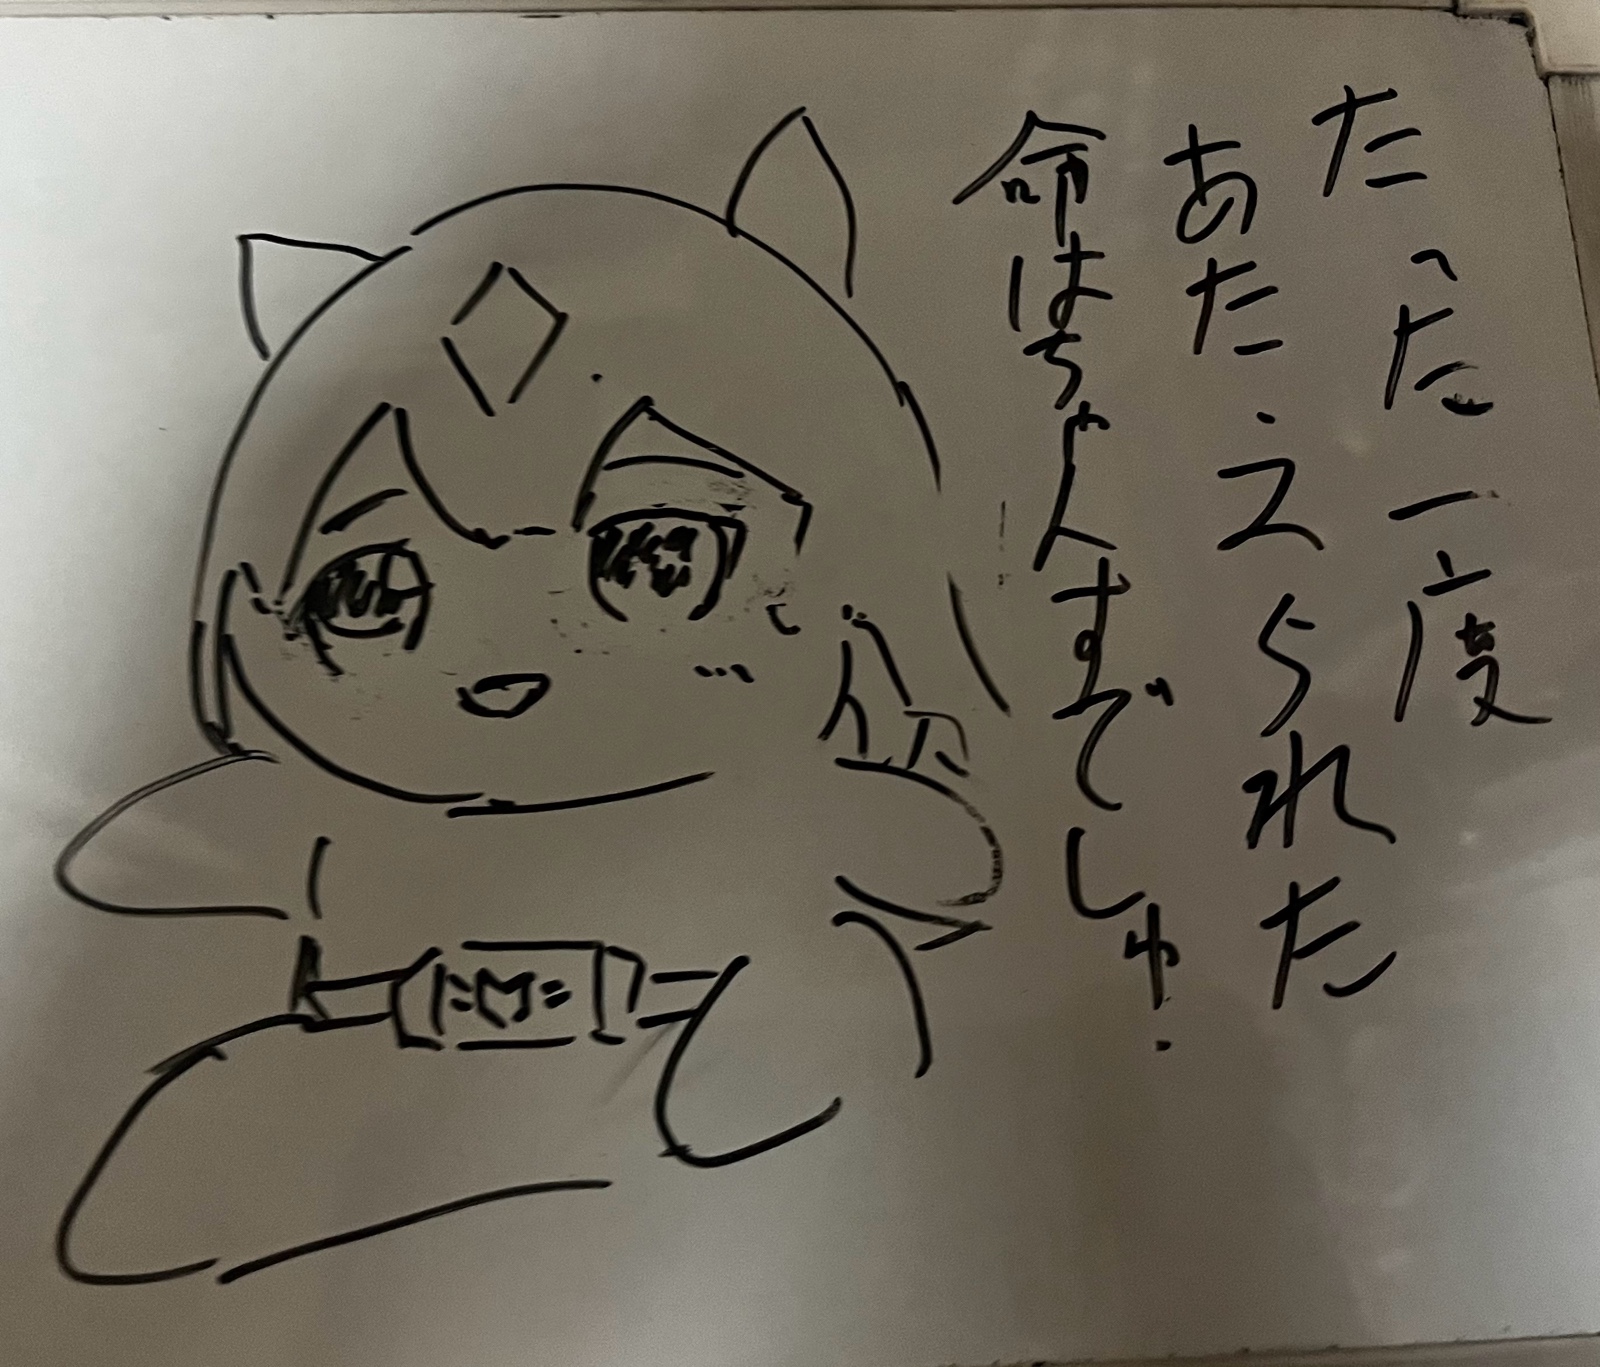 たった一度
あたえられた
命はちゃんすでしゅ